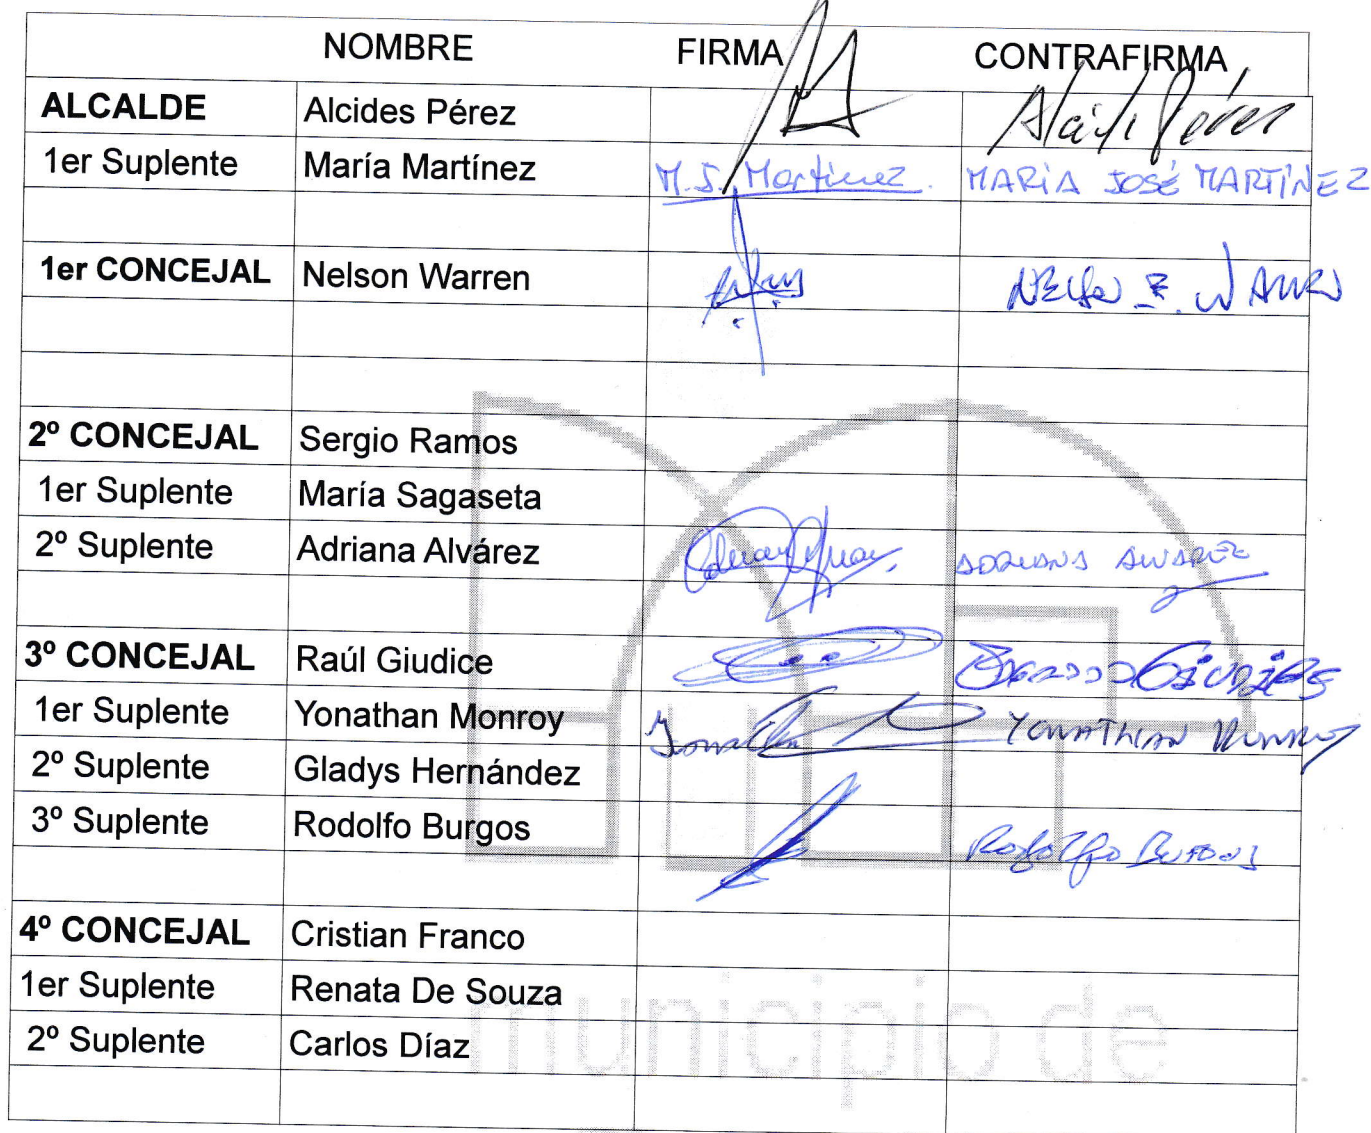 NOMBRE FIRMA CONTRAFIRMA
ALCALDE Alcides Pérez Alcides Pérez
1er Suplente María Martínez M.J. Martinez. MARIA JOSÉ MARTÍNEZ
1er CONCEJAL Nelson Warren
2º CONCEJAL Sergio Ramos
1er Suplente María Sagaseta
2º Suplente Adriana Alvárez ADRIANA ALVAREZ
3º CONCEJAL Raúl Giudice
1er Suplente Yonathan Monroy Yonathan YONATHAN MONROY
2º Suplente Gladys Hernández
3º Suplente Rodolfo Burgos Rodolfo Burgos
4º CONCEJAL Cristian Franco
1er Suplente Renata De Souza
2º Suplente Carlos Díaz
municipio de